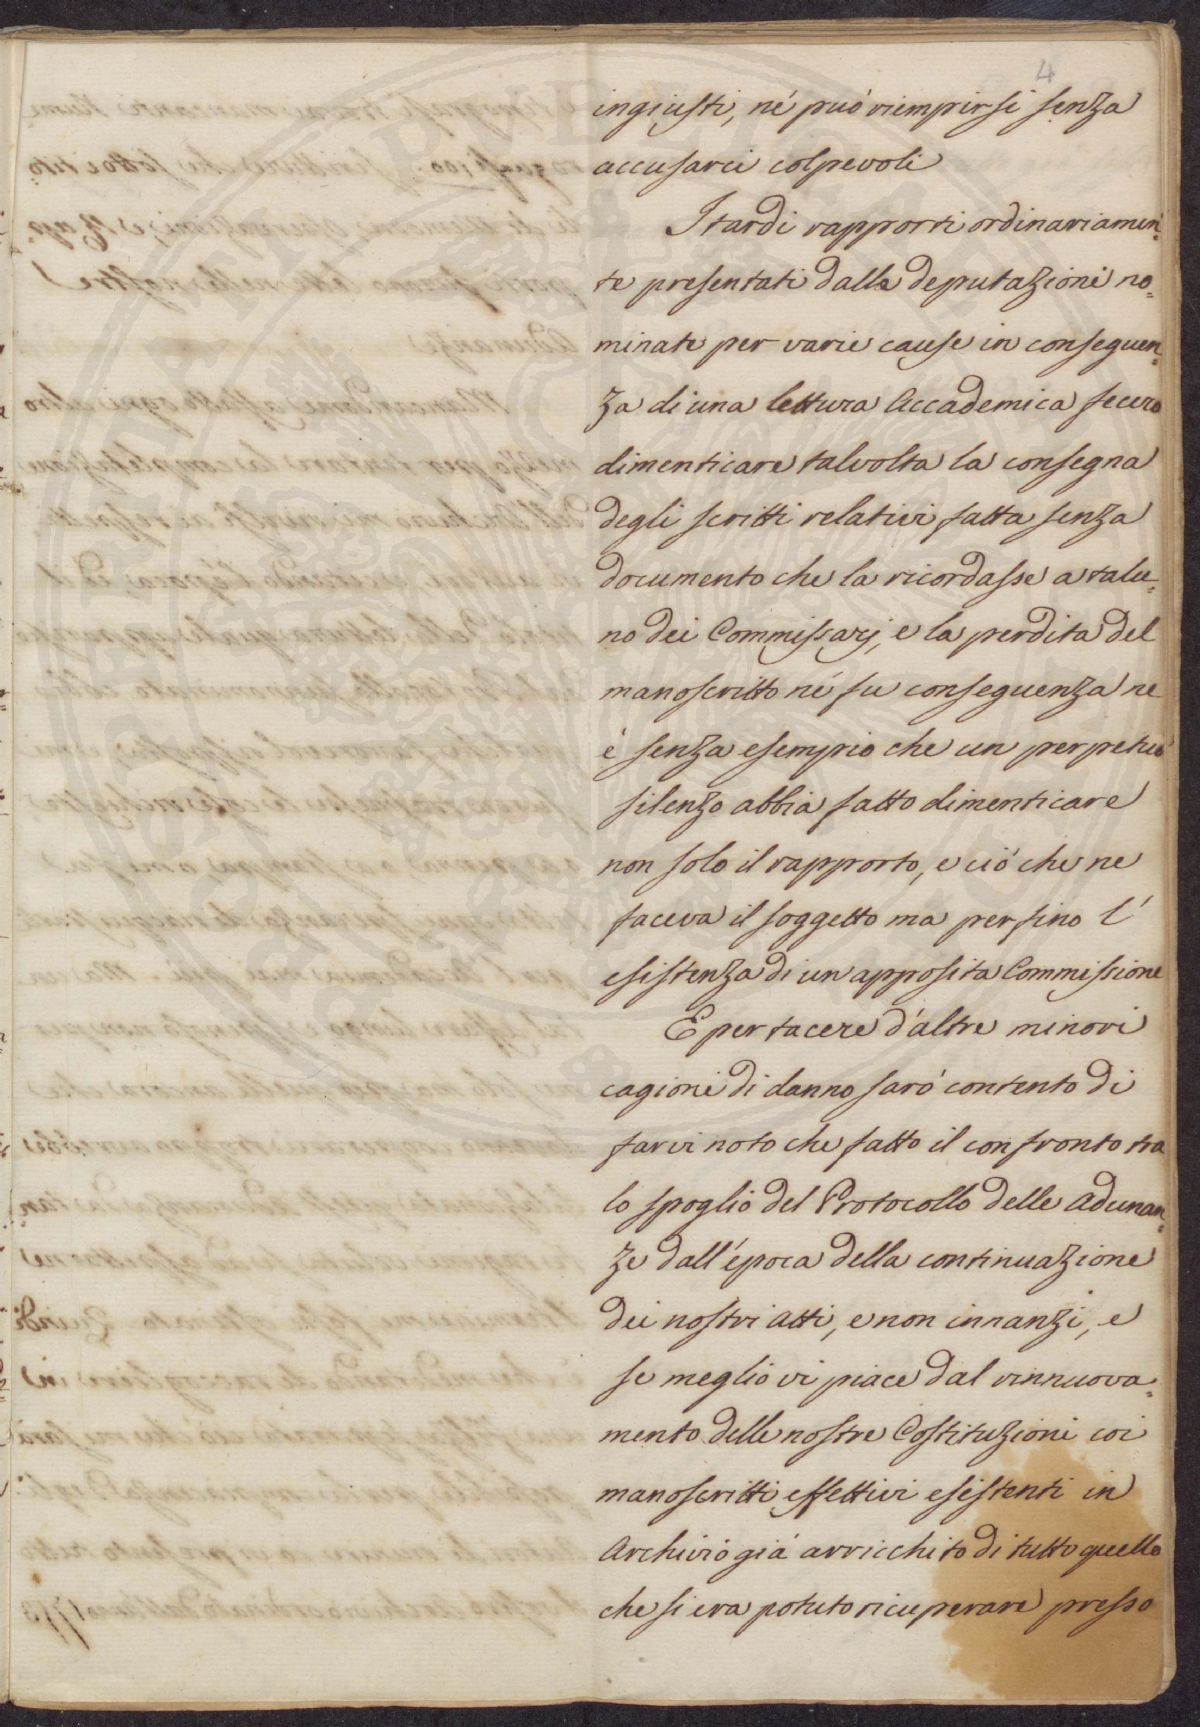 4
ingiusti, né può riempirsi senza
accusarci colpevoli
I tardi rapporti ordinariamen=
te presentati dalle deputazioni no=
minate per varie cause in conseguen=
za di una lettura Accademica fecero
dimenticare talvolta la consegna
degli scritti relativi fatta senza
documento che la ricordasse a talu=
no dei Commissarj, e la perdita del
manoscritto né fu conseguenza ne
è senza esempio che un perpetuo
silenzo abbia fatto dimenticare
non solo il rapporto, e ciò che ne
faceva il soggetto ma persino l'
esistenza di un apposita Commissione
E per tacere d'altre minori
cagioni di danno sarò contento di
farvi noto che fatto il confronto tra
lo spoglio del Protocollo delle Adunan=
ze dall'época della continuazione
dei nostri Atti, e non innanzi, e
se meglio vi piace dal rinnuova=
mento delle nostre Costituzioni coi
manoscritti effettivi esistenti in
Archivio già arricchito di tutto quello
che si era potuto ricuperare presso